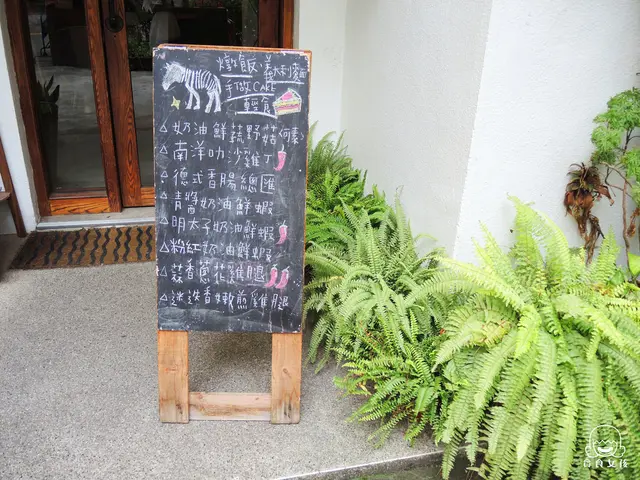 燉飯·義大利麵
手做CAKE
輕食
△奶油鮮蔬野菇
△南洋叻沙雞丁
△德式香腸總匯
△青醬奶油鮮蝦
△明太子奶油鮮蝦
△粉紅奶油鮮蝦
△蒜香蔥花雞腿
△迷迭香嫩煎雞腿